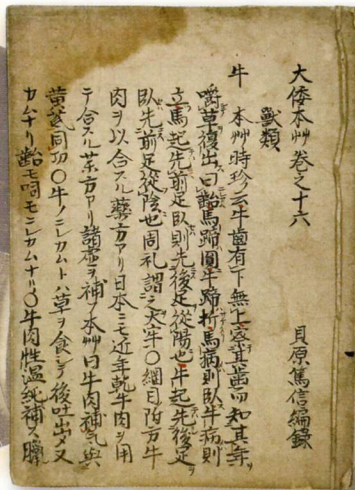 大倭本艸巻之十六　貝原篤信編録
獸類
牛　本艸時珍云牛齒有下無上察其齒而知其年
嚼草復出曰齝馬蹄圓牛蹄拆馬病則臥牛病則
立馬起先前足臥則先後足從陽也牛起先後足ヲ
臥先前足從陰也周礼謂之大牢〇綱目附方牛
肉ヲ以合スル藥方アリ日本ニモ近年乾牛肉ヲ用
テ合スル藥方アリ諸虚ヲ補フ本艸曰牛肉補氣與
黄芪同功〇牛ノニレカムトハ草ヲ食シテ後吐出メ又
カムナリ齝モ呞モニレカムナリ〇牛肉性温純補ノ